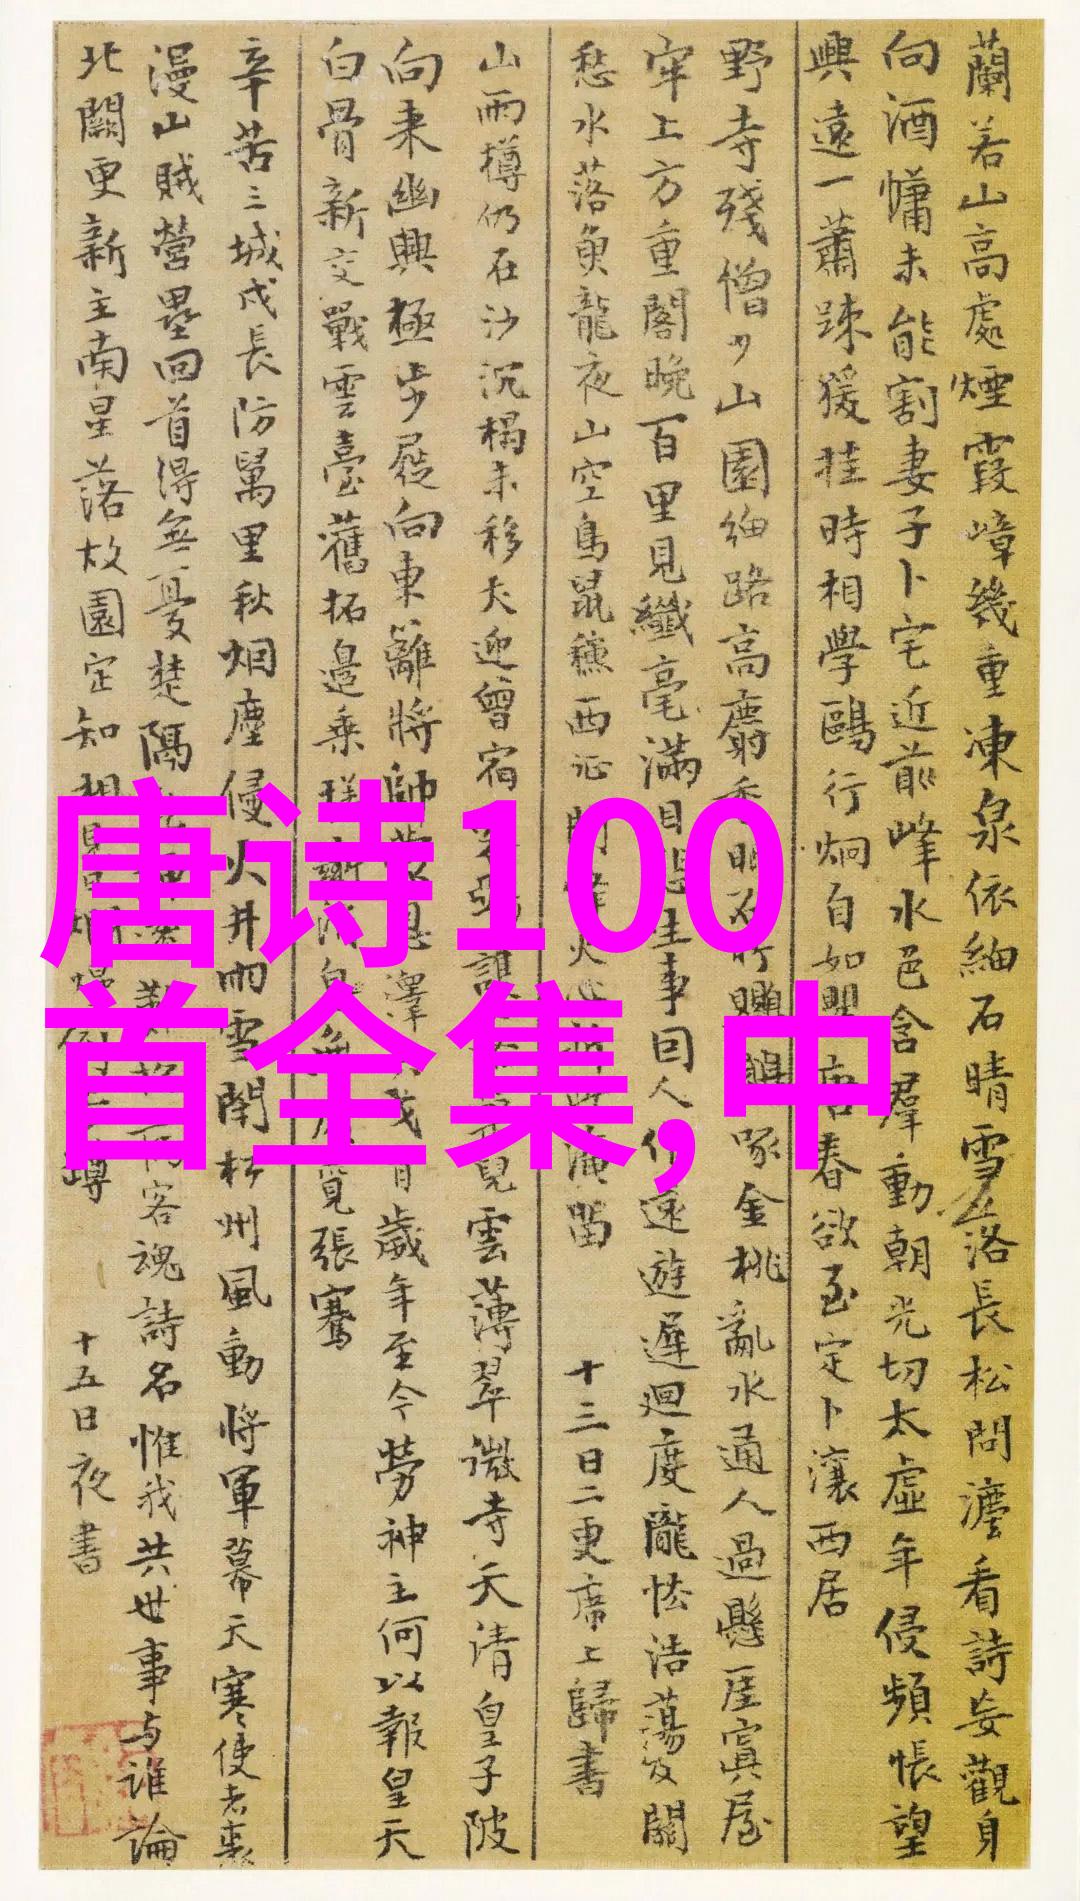 蘭若山高處煙霞嶂幾重凍泉依細石晴雪落長松問灋看詩妄觀身
向酒慵未能割妻子卜宅近前峰水色含羣動朝光切太虛年侵頻悵望
興遠一蕭疎猨挂時相學鷗行炯自如春欲至定卜瀼西居
野寺殘僧少山園細路高麝香眠啄金桃亂水通人過懸崖寘屋
牢上方重閣晚百里見纖毫滿目生事因人作遠遊遲迴度隴怯浩蕩及關
愁水落魚龍夜山空鳥鼠穐西征問烽火留 十三日二更席上歸書
山雨樽仍在沙沉榻未移犬迎曾宿覓雲薄翠微寺天清皇子陂
向来幽興極步屧向東籬將帥恩澤歲年至今勞神主何以報皇天
白骨新交戰雲臺舊拓邊乘覓張騫
辛苦三城戍長防萬里秋烟塵侵火井雨雪閉松州風動將軍幕天寒使者裘
漫山賊營壘回首得無憂楚隔客魂詩名惟我共世事与誰論
北闕更新主南星落故園定知相見 十五日夜書
唐诗100
首全集,中